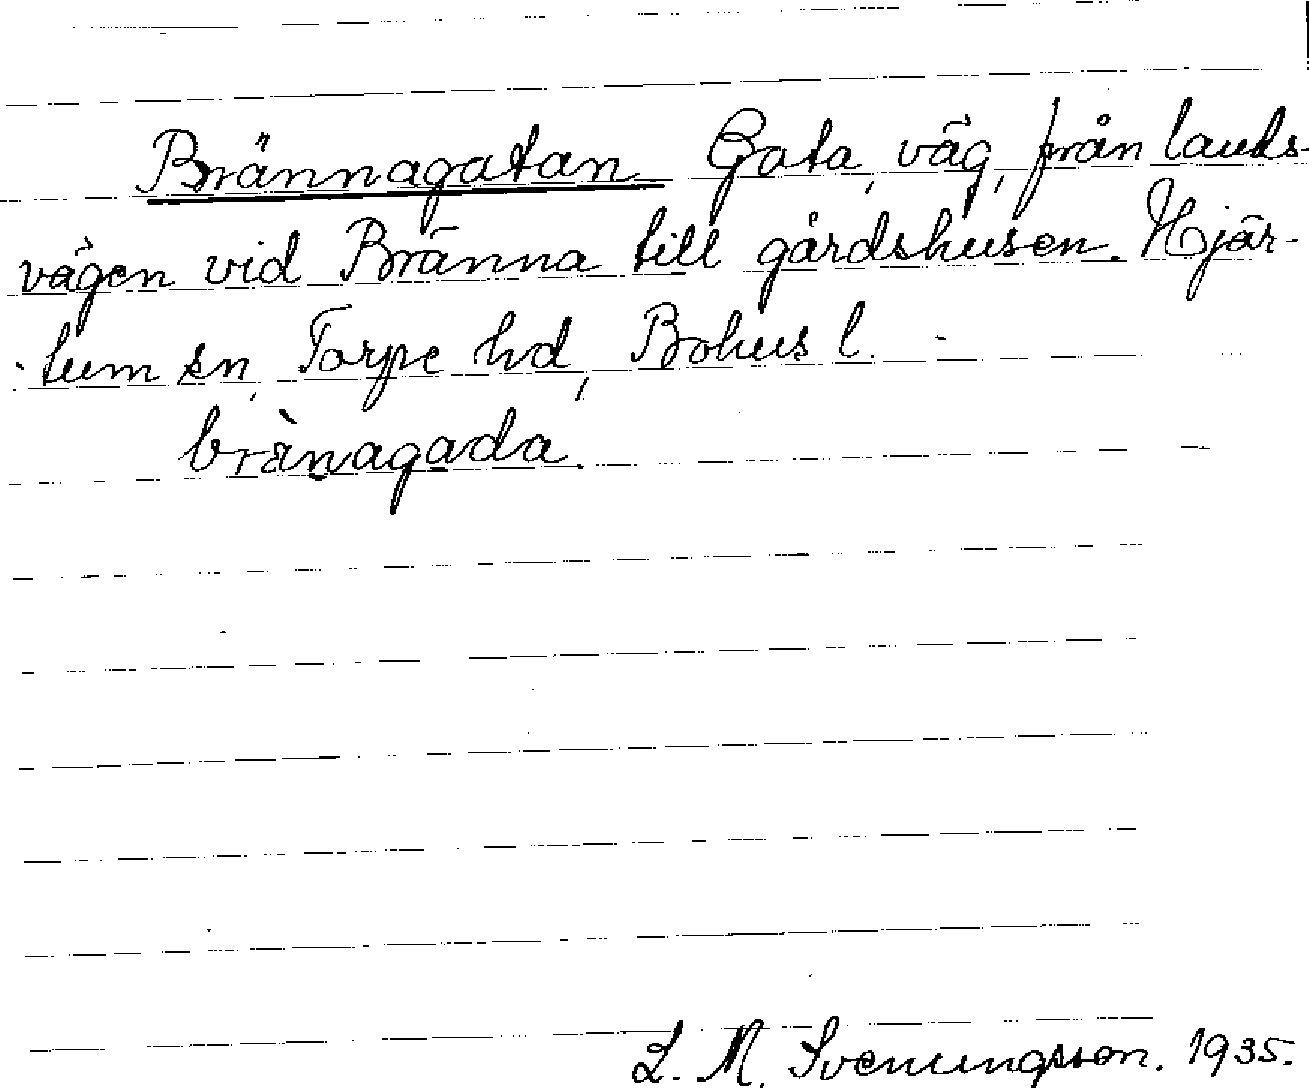 Brännagatan Gata, väg, från lands-
vägen vid Bränna till gårdshusen. Hjär-
tum sn, Torpe hd, Bohus l.
brànagada.
L. M. Svenungsson. 1935.